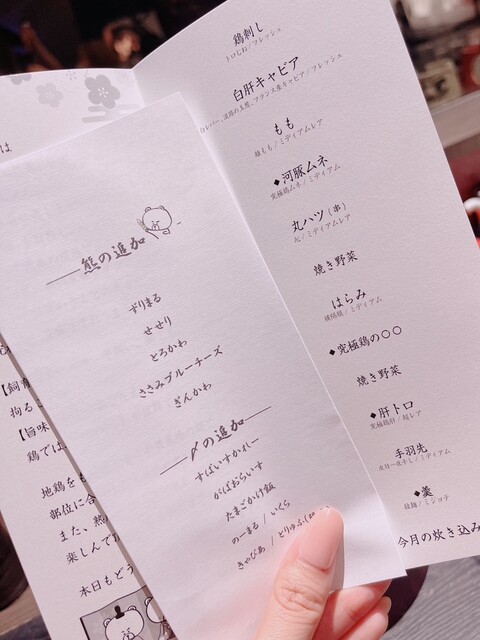 は
【飼育
拘るこ
【旨味
鶏では
地鶏をも
部位に合
また、熊
楽しんで
本日もどう
熊の追加
ずりまる
せせり
とろかわ
ささみブルーチーズ
ぎんかわ
〆の追加
すぱいすかれー
がぱおらいす
たまごかけ飯
のーまる / いくら
きゃびあ / とりゅふ
鶏刺し
白肝キャビア
もも
ミディアムレア
◆河豚ムネ
究極鶏ムネ / ミディアム
丸ハツ（串）
丸 / ミディアムレア
焼き野菜
はらみ
横隔膜 / ミディアム
◆究極鶏の〇〇
焼き野菜
◆肝トロ
究極鶏肝 / 超レア
手羽先
ミディアム
◆羹
今月の炊き込み